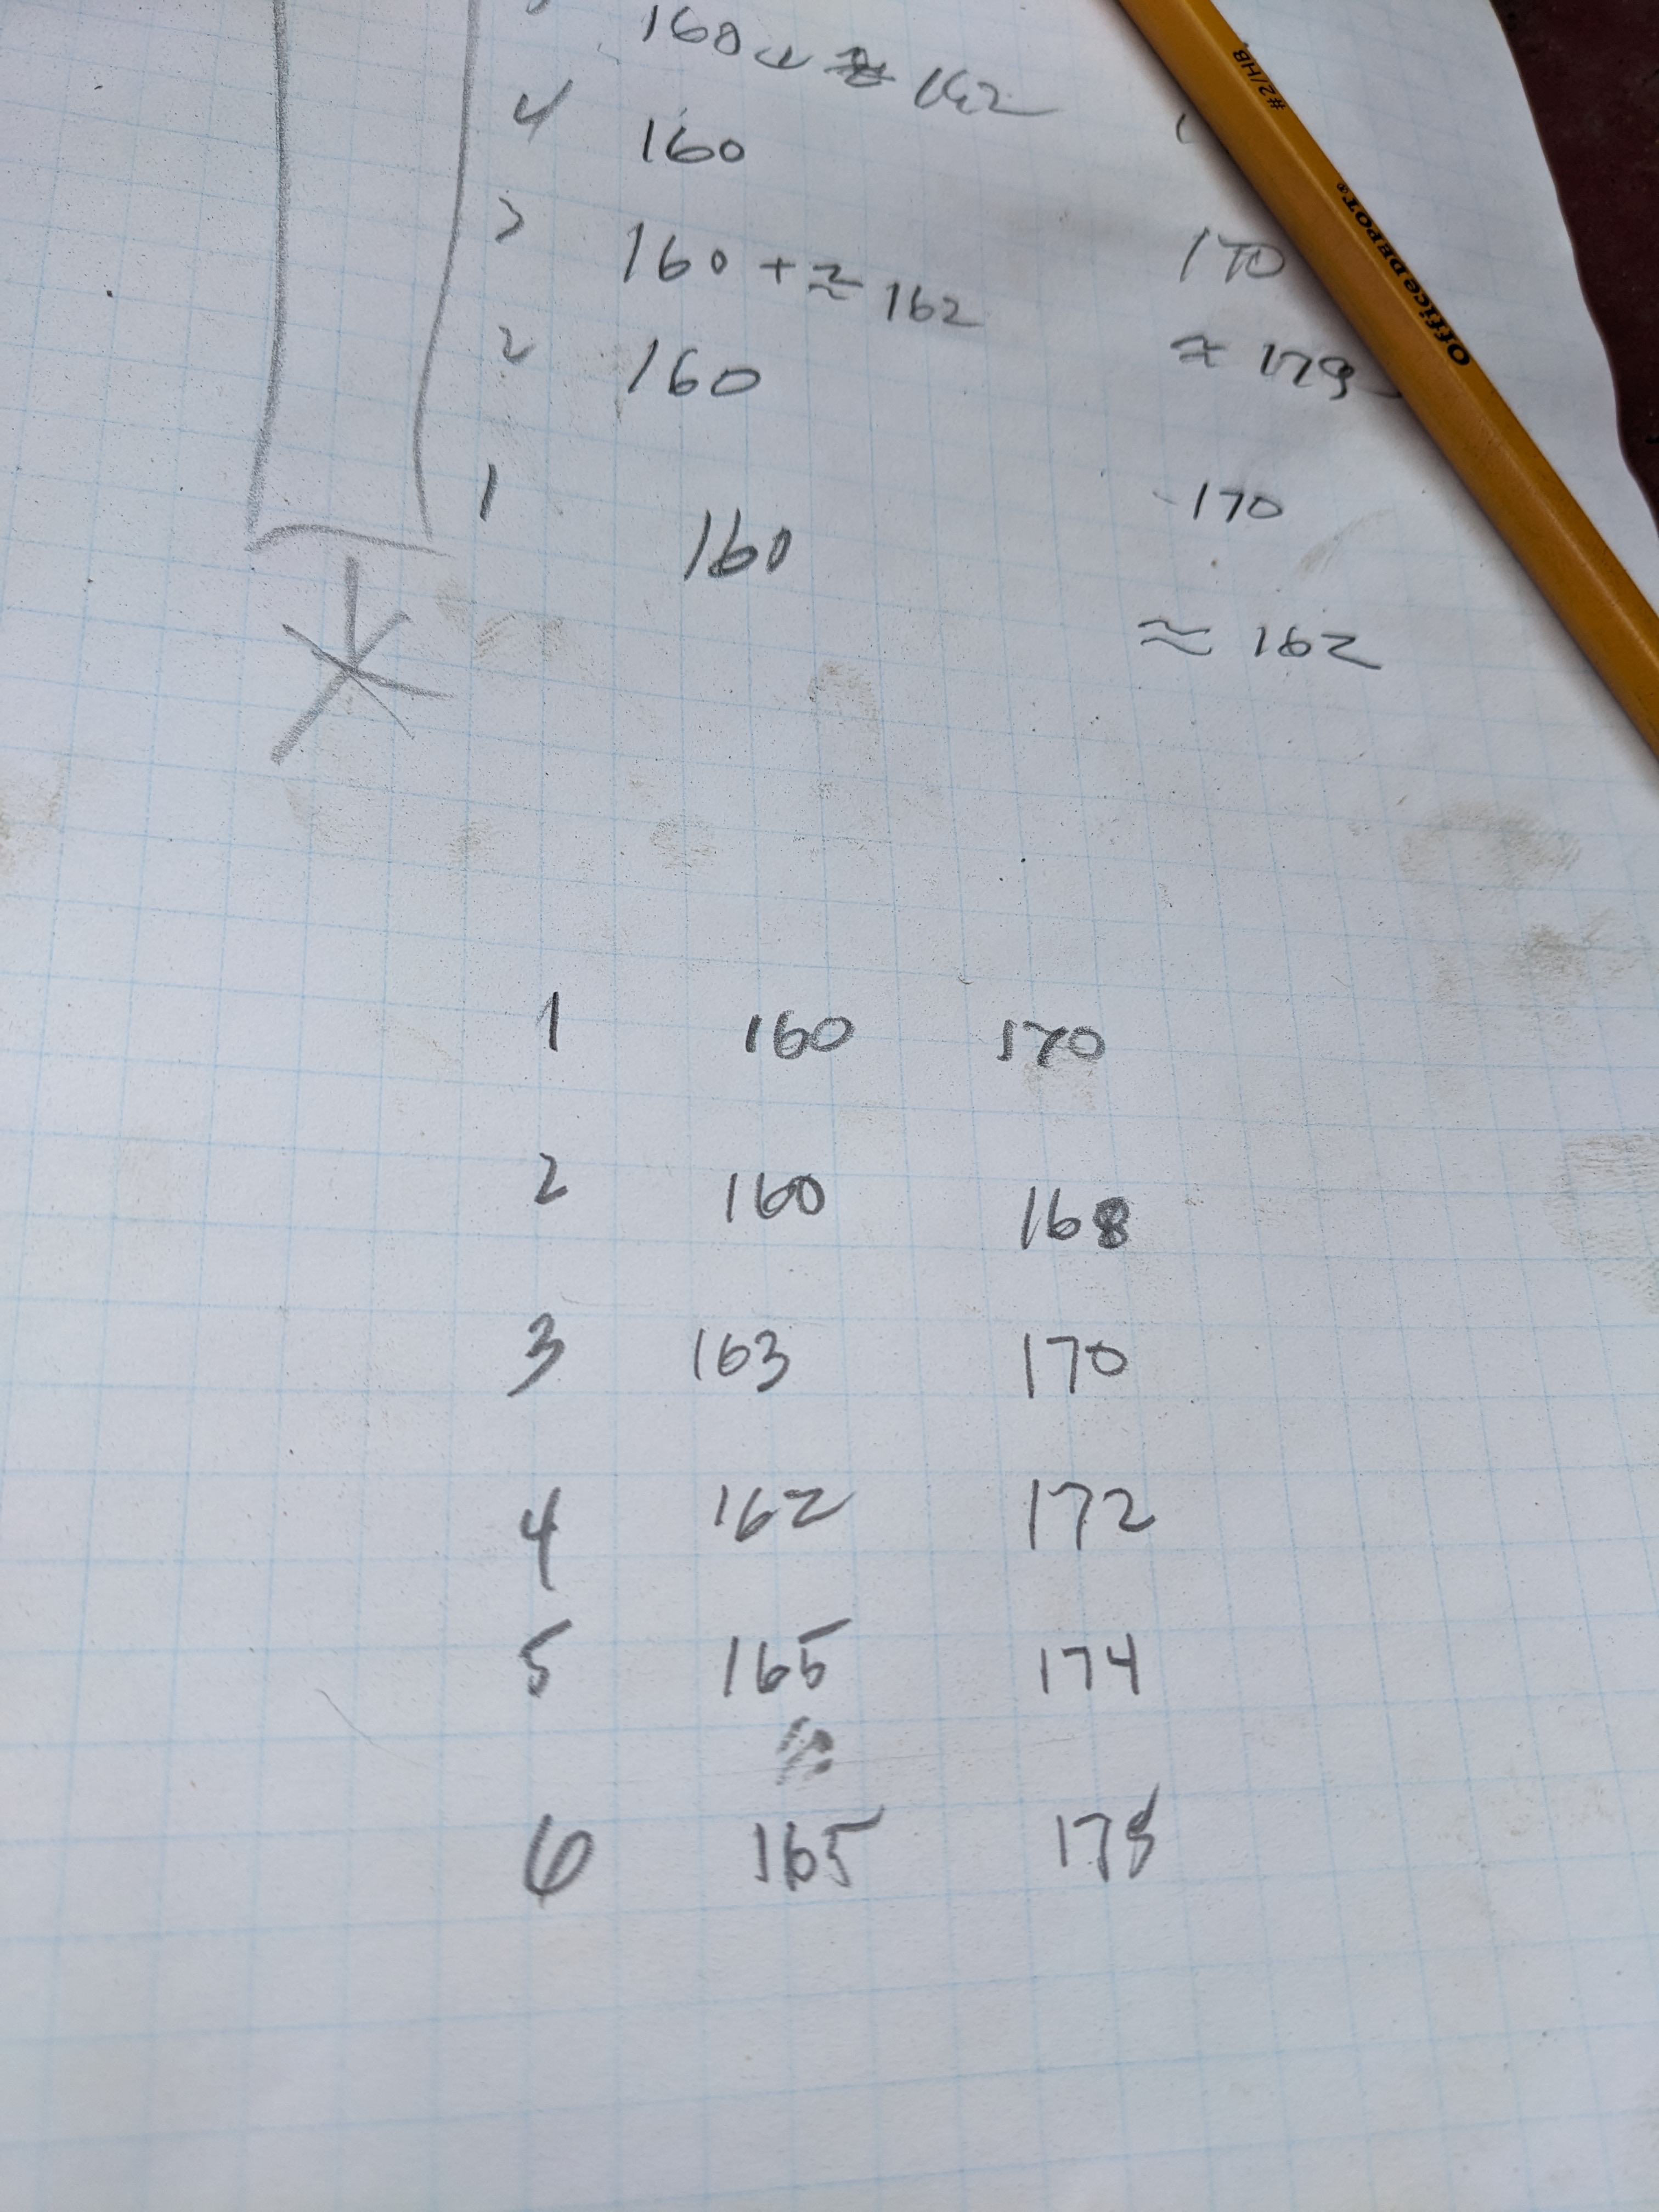 160 + ≈ 162
4 160
3 160 + ≈ 162 170
2 160 ≈ 173
1 160 170
≈ 162
#2/HB
Office DEPOT®
1 160 170
2 160 168
3 163 170
4 162 172
5 165 174
6 165